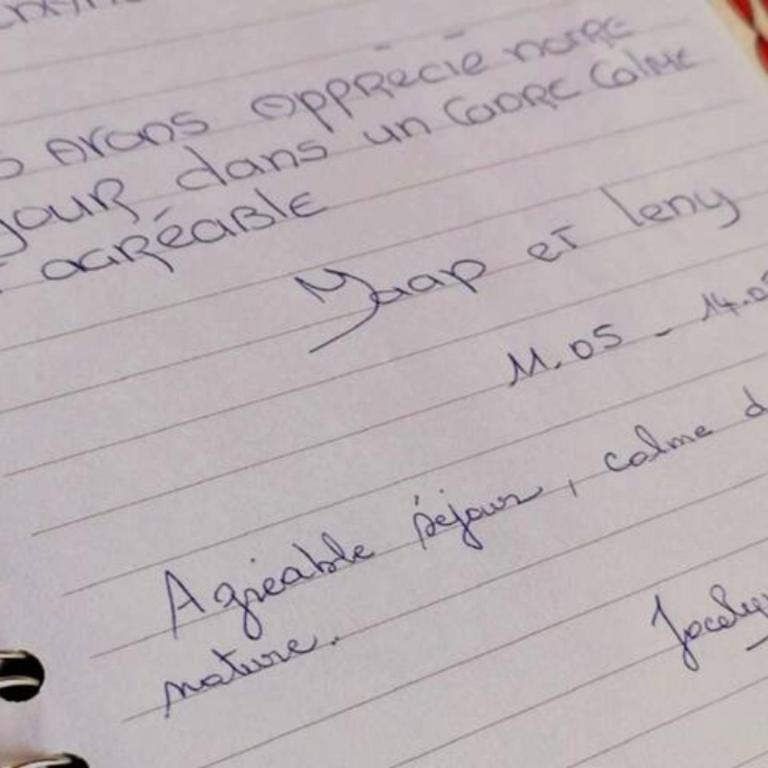 avons apprécié notre
jour dans un cadre calme
agréable
Jaap et leny
11.05 - 14.0
Agréable séjour, calme d
nature.
Jocely